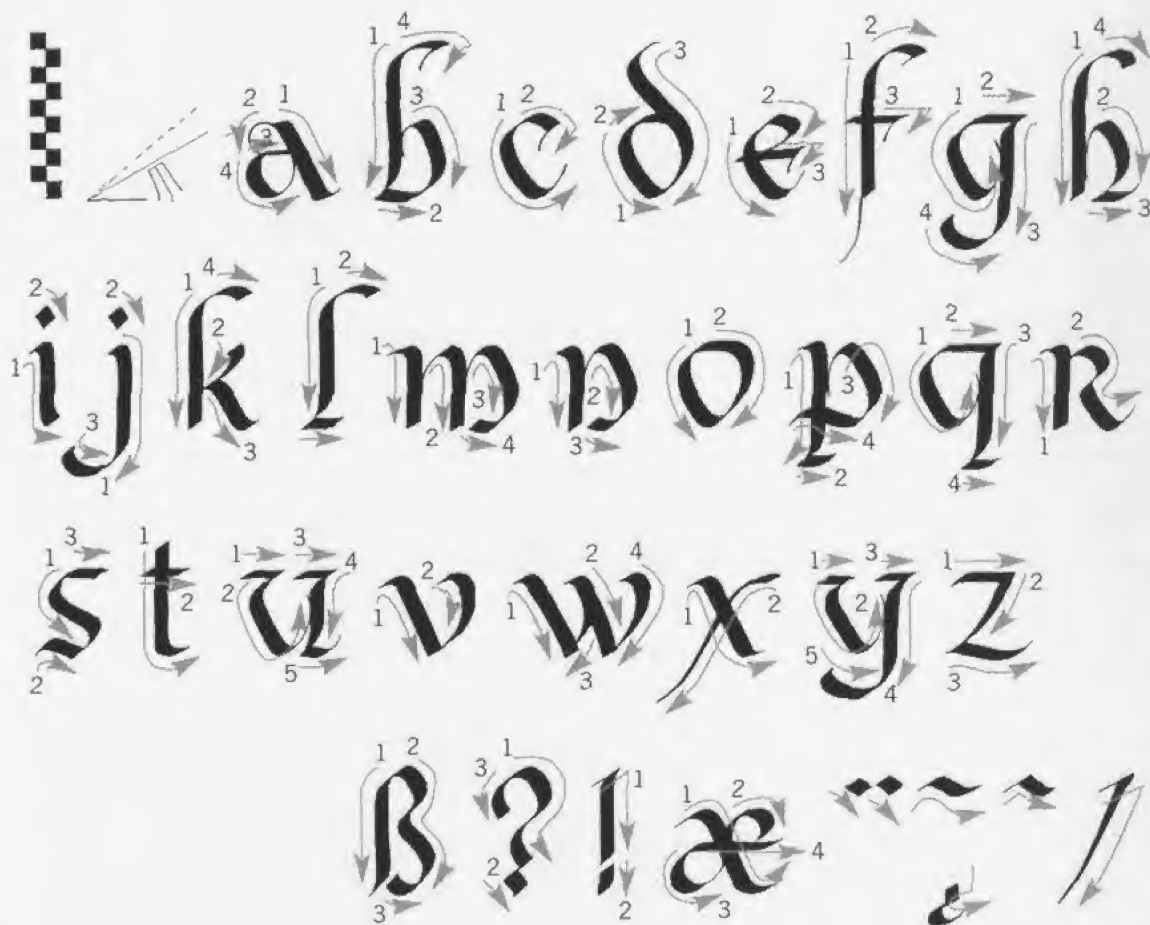 a b c d e f g h
i j k l m n o p q r
s t u v w x y z
ß ? ! æ ¨ ~ ^ ¸ /